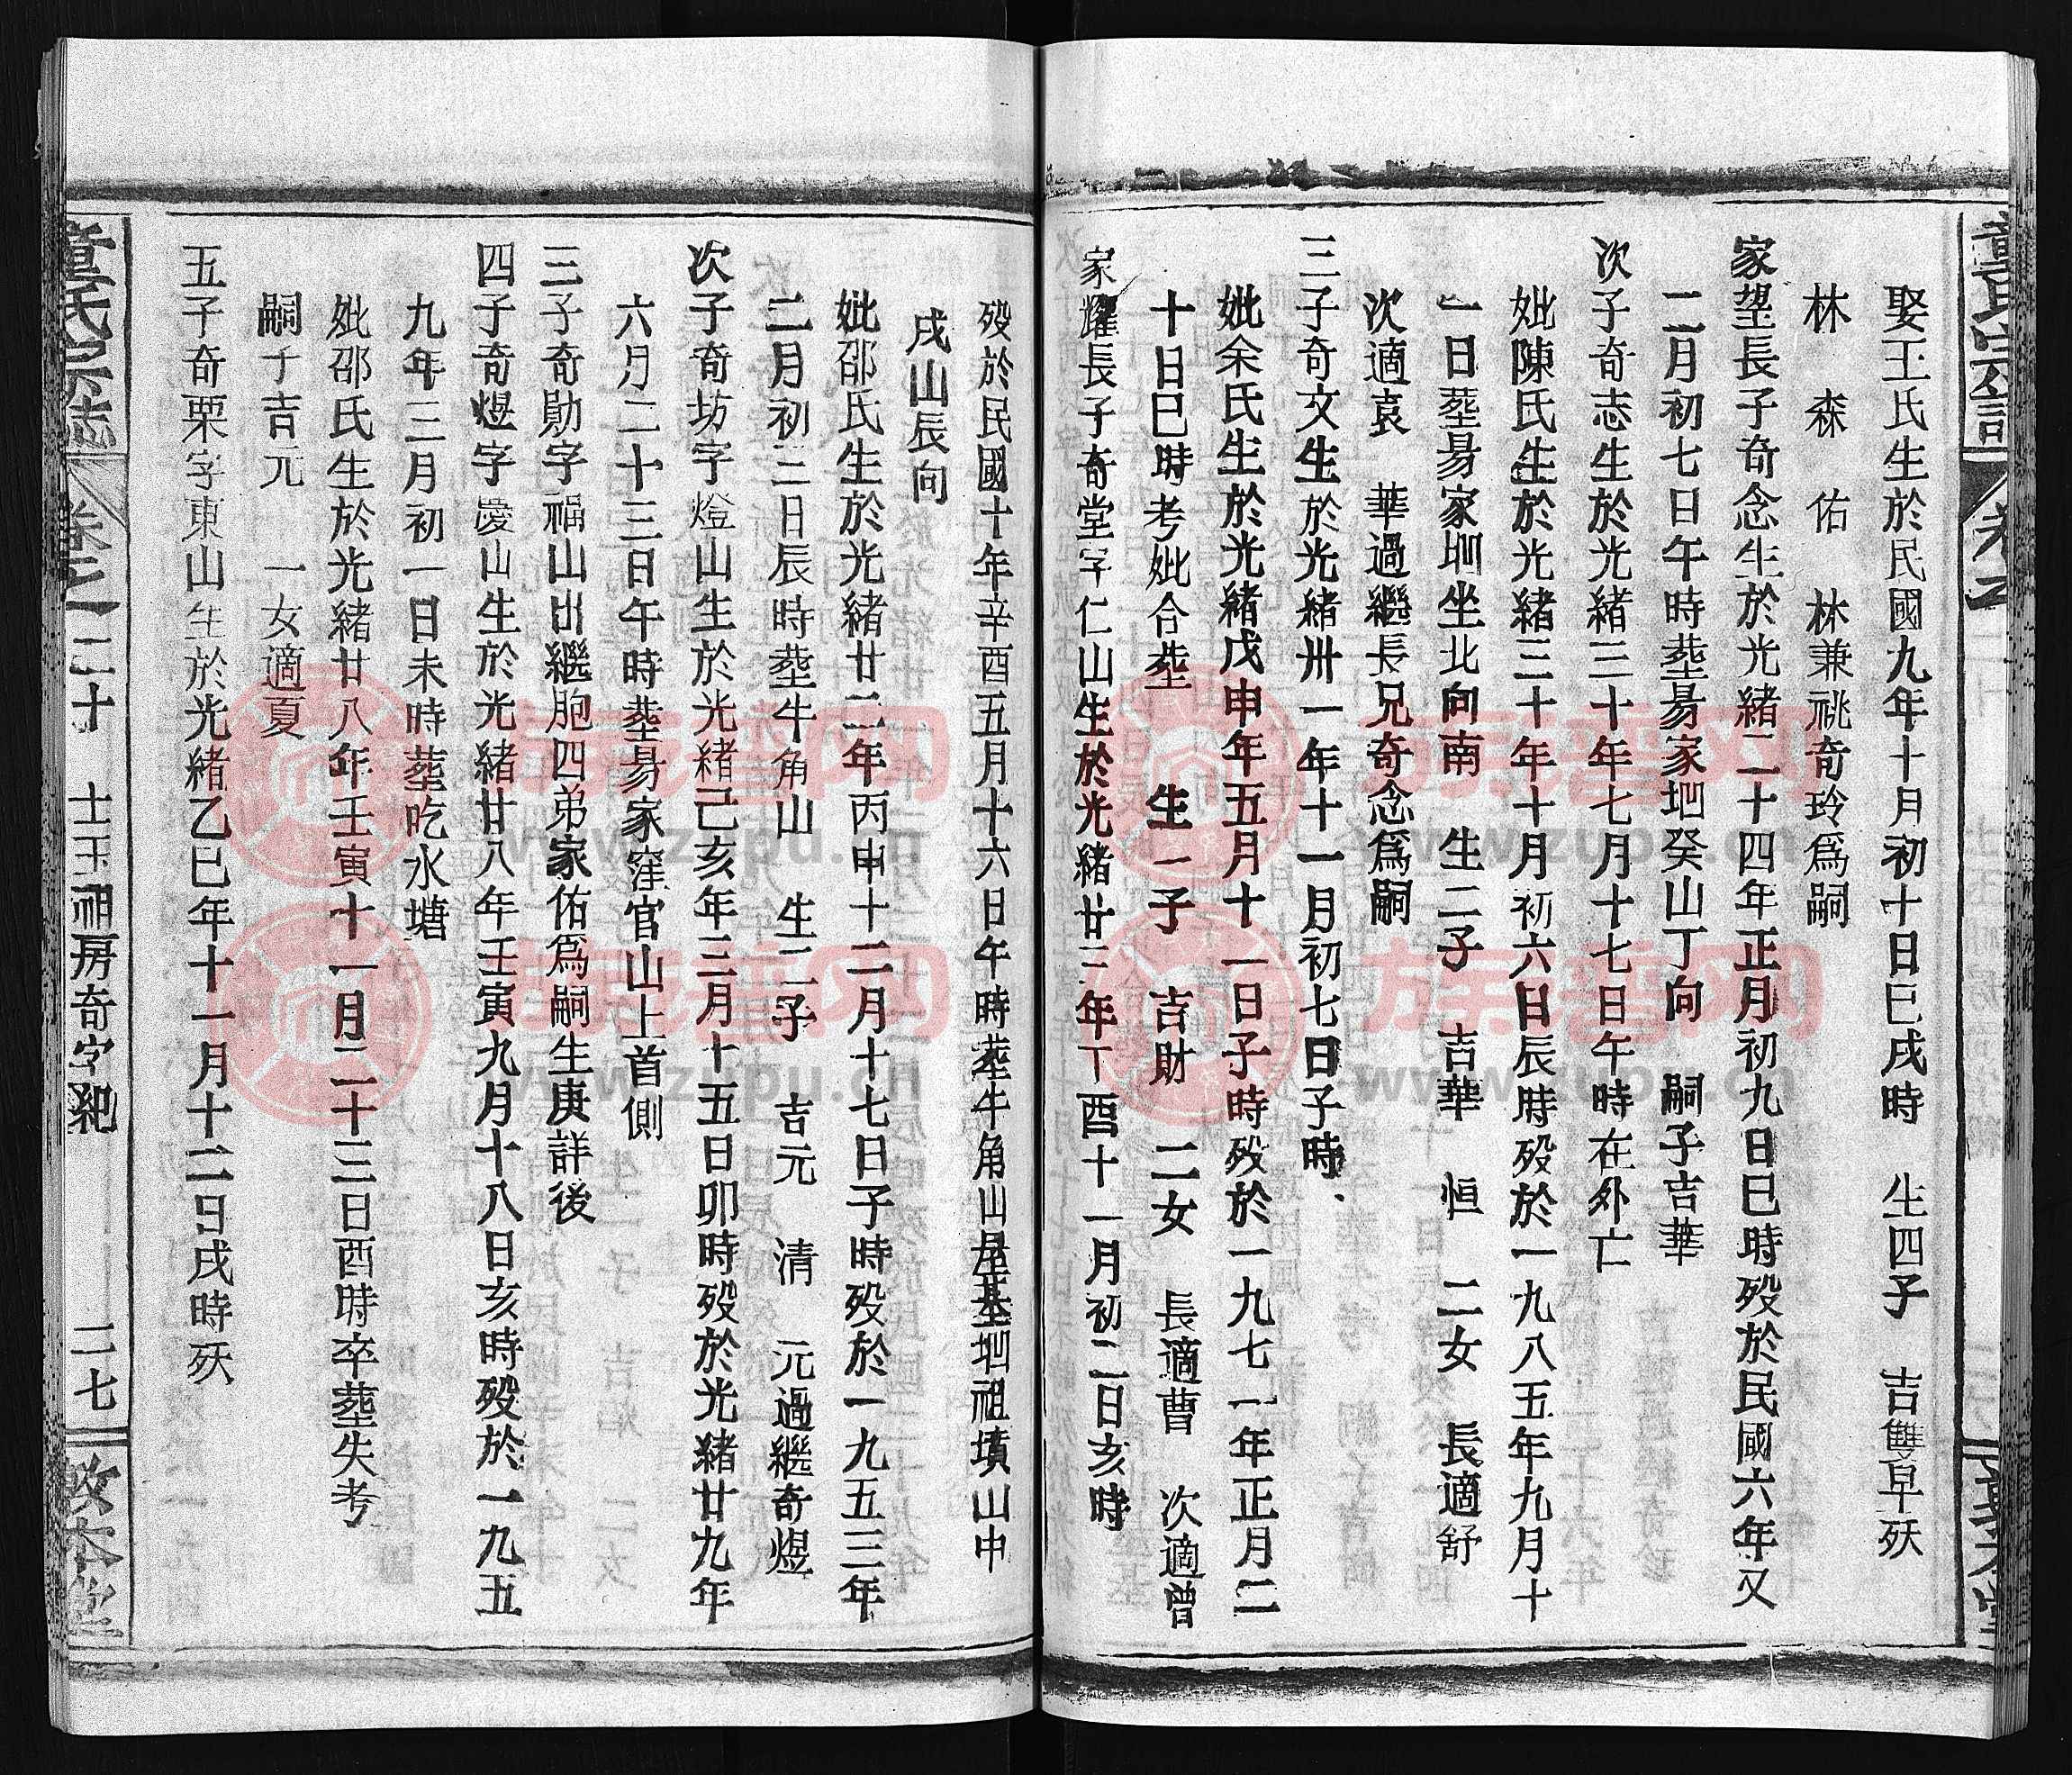 娶王氏生於民國九年十月初十日巳戌時　生四子　吉雙早殀
林　森　佑　林兼祧奇玲爲嗣
家望長子奇念生於光緒二十四年正月初九日巳時殁於民國六年又
二月初七日午時塟易家垇癸山丁向　嗣子吉華
次子奇志生於光緒三十年七月十七日午時在外亡
妣陳氏生於光緒三十年十月初六日辰時殁於一九八五年九月十
一日塟易家圳坐北向南　生二子　吉華　恒　二女　長適舒
次適袁　華過繼長兄奇念爲嗣
三子奇文生於光緒卅一年十一月初七日子時
妣余氏生於光緒戊申年五月十一日子時殁於一九七一年正月二
十日巳時考妣合塟　生一子　吉財　二女　長適曹　次適曾
家耀長子奇堂字仁山生於光緒廿三年丁酉十一月初二日亥時
殁於民國十年辛酉五月十六日午時塟牛角山屋基垇祖墳山中
戌山辰向
妣邵氏生於光緒廿二年丙申十二月十七日子時殁於一九五三年
二月初三日辰時塟牛角山　生二子　吉元　清　元過繼奇煜
次子奇坊字燈山生於光緒己亥年三月十五日卯時殁於光緒廿九年
六月二十三日午時塟易家窪官山上首側
三子奇勛字福山出繼胞四弟家佑爲嗣生庚詳後
四子奇煜字愛山生於光緒廿八年壬寅九月十八日亥時殁於一九五
九年三月初一日未時塟吃水塘
妣邵氏生於光緒廿八年壬寅十一月二十三日酉時卒塟失考
嗣子吉元　一女適夏
五子奇栗字東山生於光緒乙巳年十一月十二日戌時殀
童氏宗誌　卷之一二十　士玉祖房奇字紀　二七　敦本堂
族譜网
www.zupu.cn
族譜网
www.zupu.cn
族譜网
www.zupu.cn
族譜网
www.zupu.cn